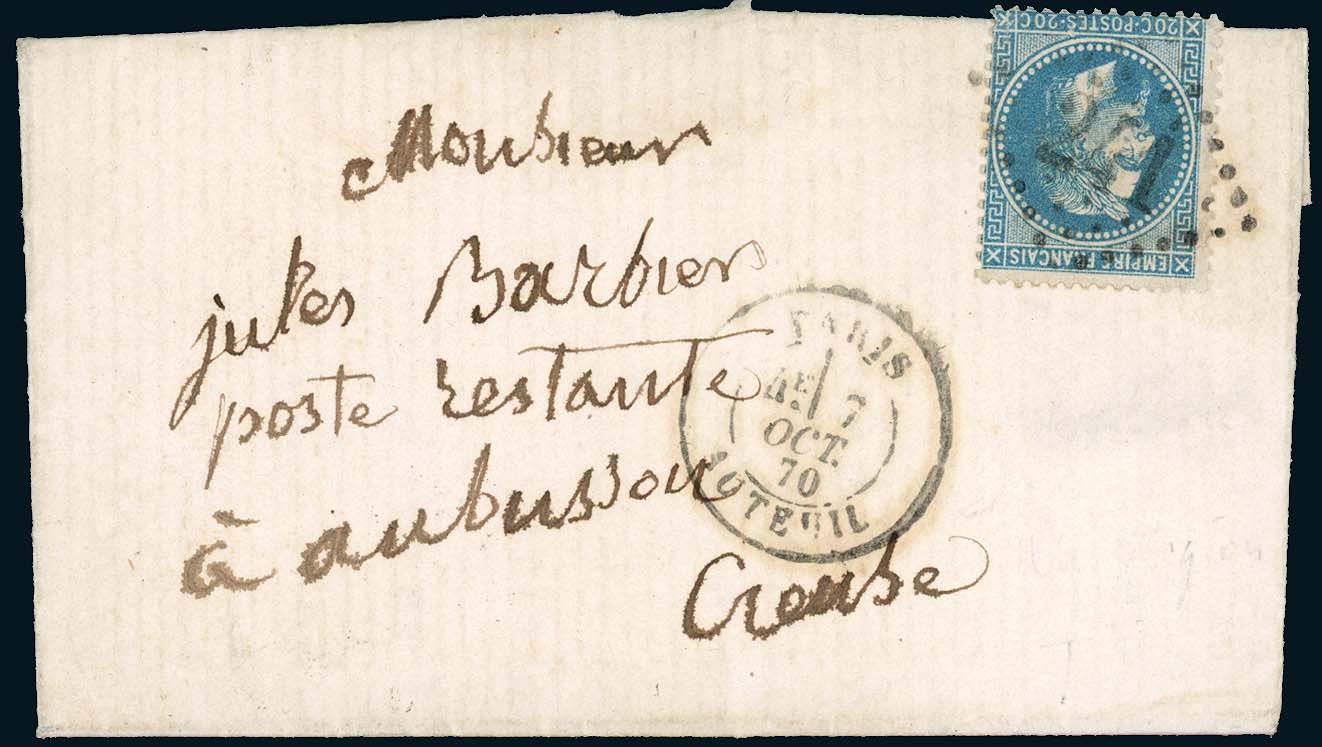 20C·POSTES·20C
EMPIRE FRANCAIS
Monsieur
jules Barbier
poste restante
à aubusson
Creuse
PARIS
4E 7
OCT.
70
AUTEUIL